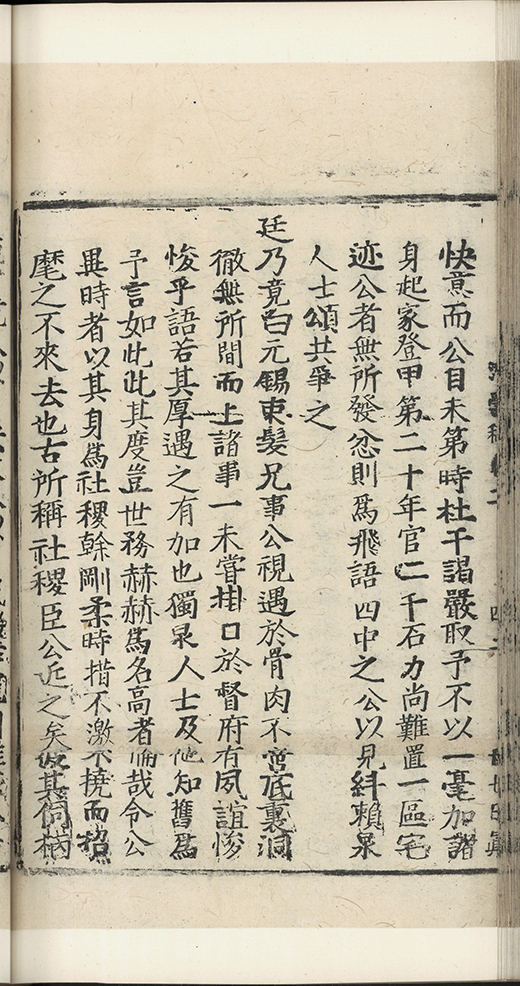 快意而公自未第時杜干謁嚴取予不以一毫加諸
身起家登甲第二十年官二千石力尚難置一區宅
迹公者無所發忿則為飛語四中之公以見糾賴泉
人士頌共爭之
廷乃竟白元錫束髮兄事公視遇於骨肉不啻底裏洞
徹無所間而上諸事一未嘗掛口於督府有夙誼悛
悛乎語若其厚遇之有加也獨泉人士及他知舊為
予言如此此其度豈世務赫赫為名高者倫哉令公
異時者以其身為社稷幹剛柔時措不激不撓而招
麾之不來去也古所稱社稷臣公近之矣